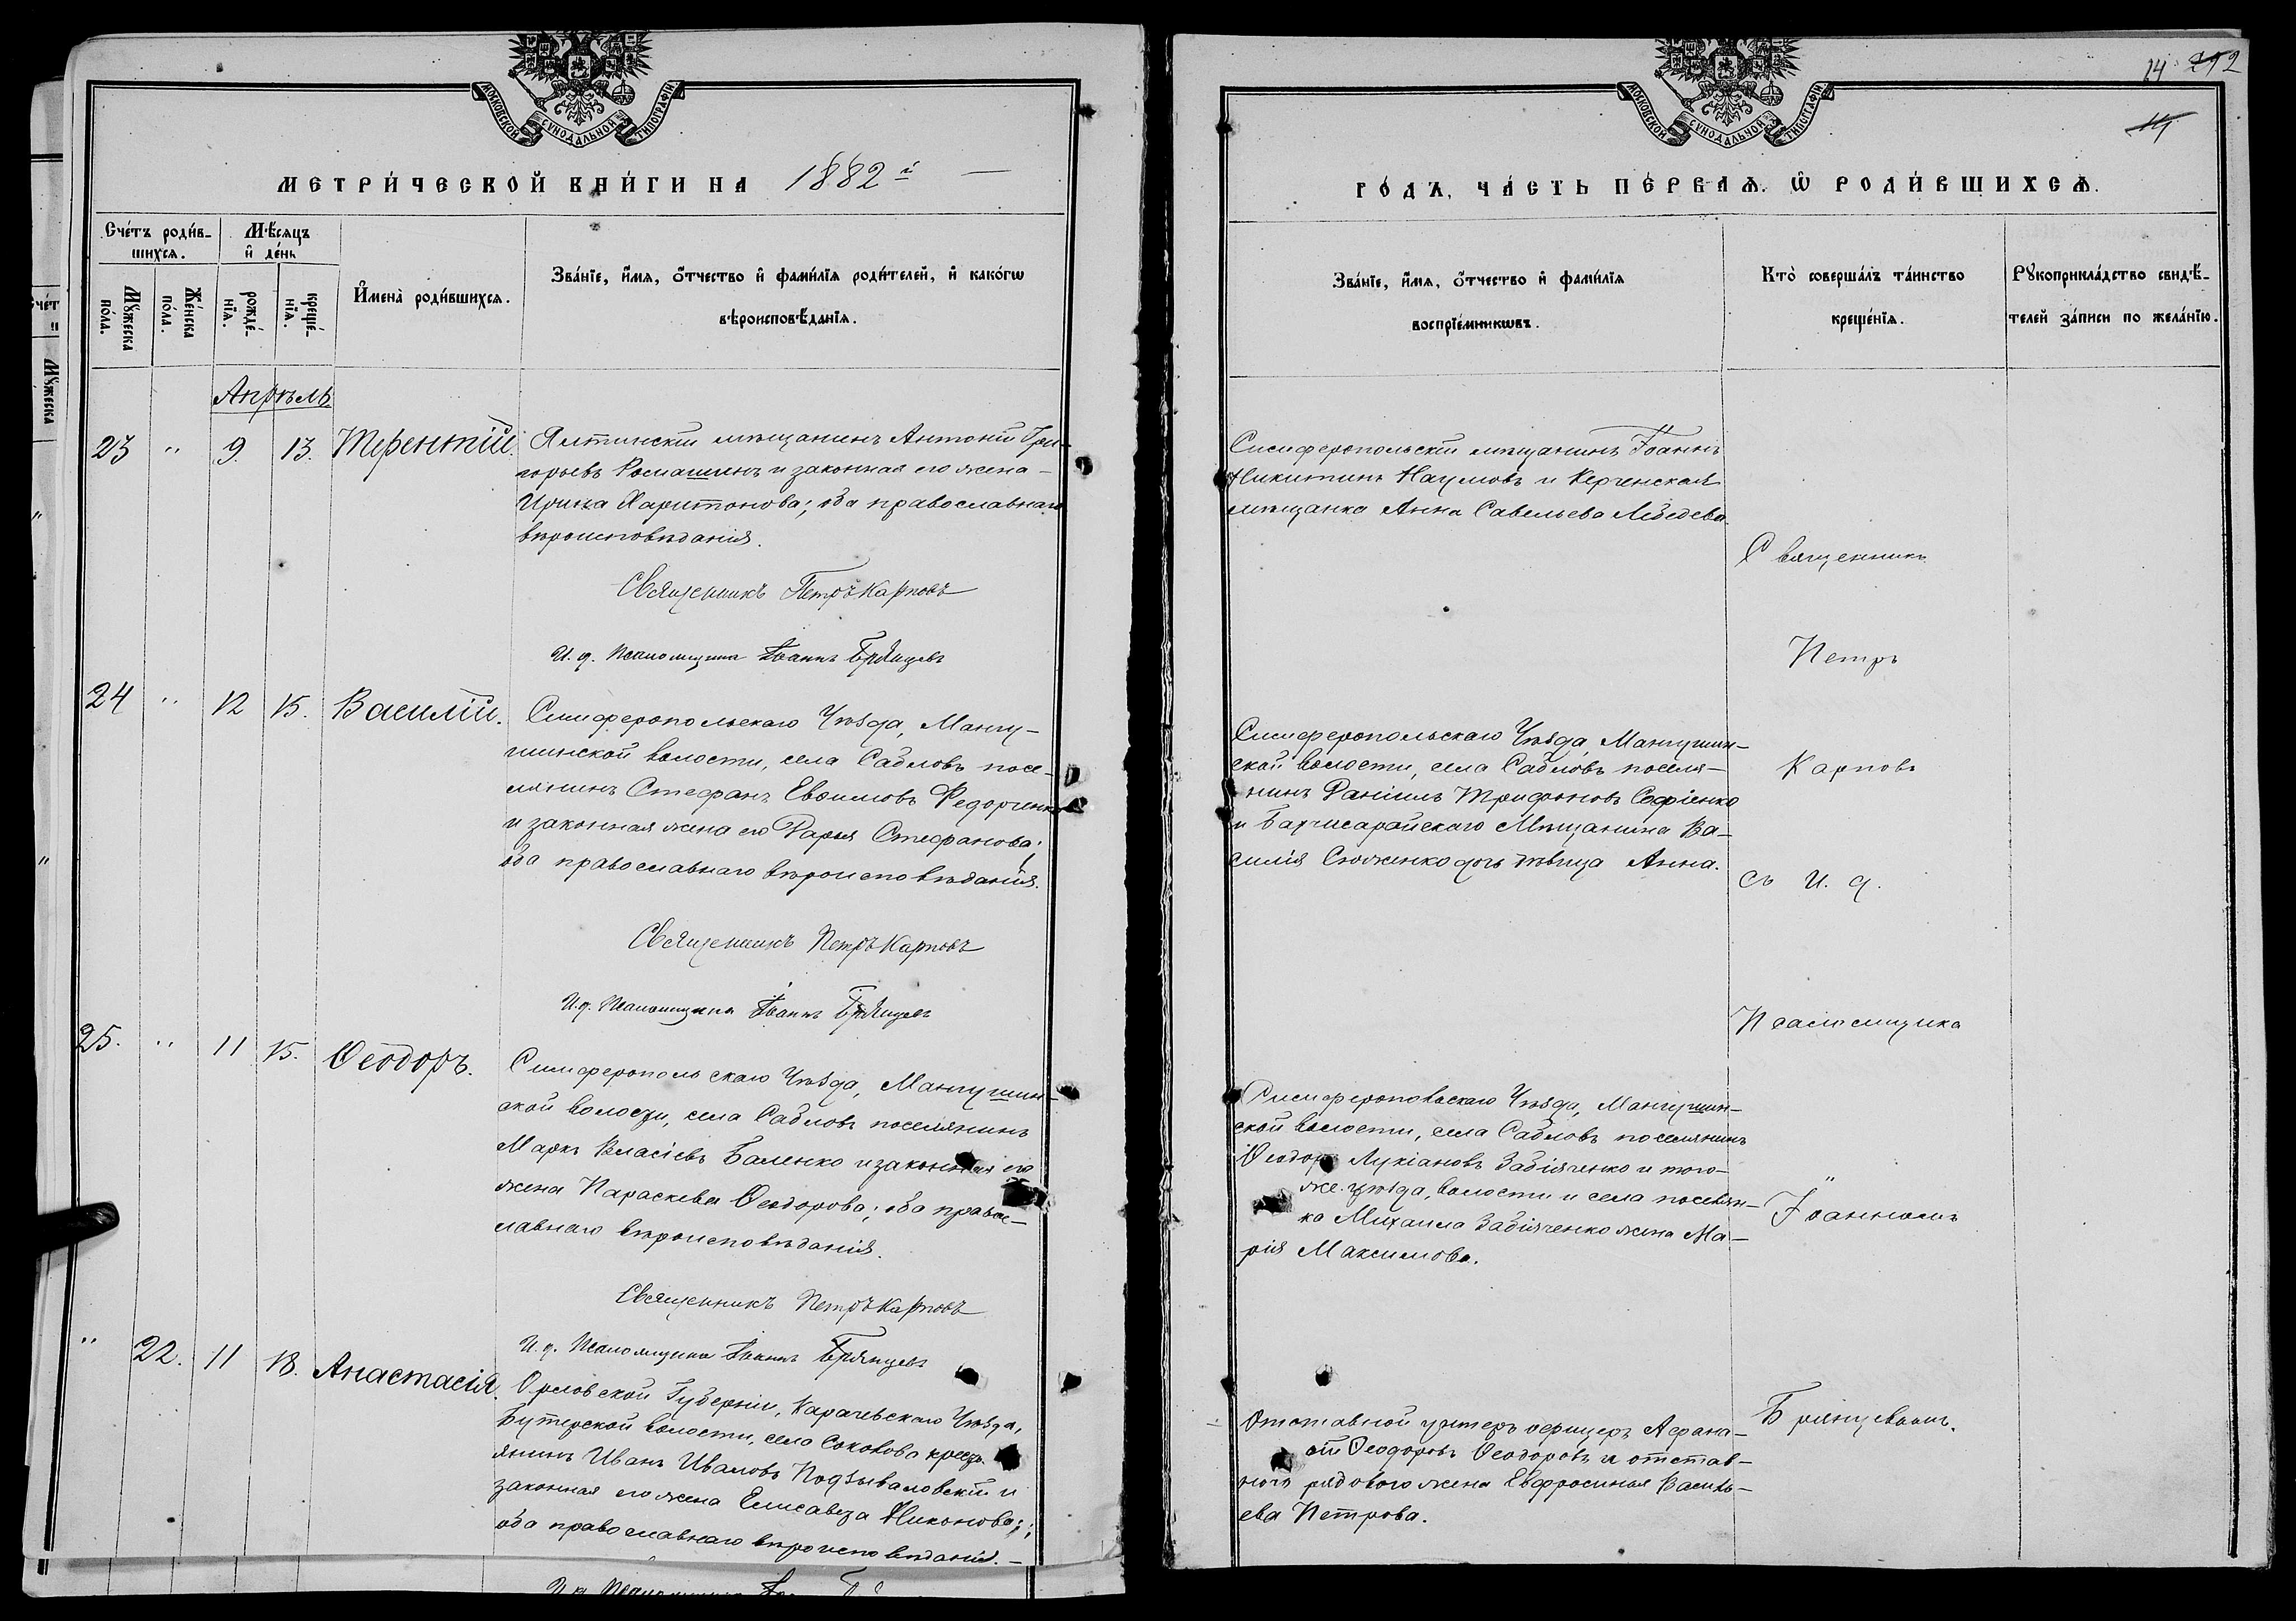 МОСКОВСКОЙ СѴНОДАЛЬНОЙ ТИПОГРАФІИ
МЕТРИ́ЧЕСКОЙ КНИ́ГИ НА 1882 й
Сче́тъ роди́в-
шихсѧ.
Мѣ́сѧцъ
и҆ де́нь
Мꙋ́жеска
по́ла.
Же́нска
по́ла.
рожде́-
нїѧ.
креще́-
нїѧ.
И҆мена̀ роди́вшихсѧ.
Зва́нїе, и҆́мѧ, ѻ҆́тчество и҆ фами́лїѧ роди́телей, и҆ како́гѡ
вѣроисповѣ́данїѧ.
Апрѣль
23 " 9. 13. Терентій.
Ялтинскій мѣщанинъ Антоній Гри-
горьевъ Ромашинъ и законная его жена
Ирина Харитонова; оба православнаго
вѣроисповѣданія.
Священникъ Петръ Карповъ
И. д. Псаломщика Іоаннъ Брянцевъ
24 " 12 15. Василій.
Симферопольскаго Уѣзда, Мангу-
шинской волости, села Сабловъ посе-
лянинъ Стефанъ Евѳимовъ Федорченко
и законная жена его Дарья Стефанова;
оба православнаго вѣроисповѣданія.
Священникъ Петръ Карповъ
И. д. Псаломщика Іоаннъ Брянцевъ
25. " 11 15. Ѳеодоръ.
Симферопольскаго Уѣзда, Мангушин-
ской волости, села Сабловъ поселянинъ
Маркъ Власіевъ Баленко и законная его
жена Параскева Ѳеодорова; оба правос-
лавнаго вѣроисповѣданія.
Священникъ Петръ Карповъ
И. д. Псаломщика Іоаннъ Брянцевъ
" 22. 11 18. Анастасія.
Орловской Губерніи, Карачевскаго Уѣзда,
Бутерской волости, села Соковова
янинъ Иванъ Ивановъ Подзываловскій и
законная его жена Елисавета Никонова;
оба православнаго вѣроисповѣданія.
14 212
14
МОСКОВСКОЙ СѴНОДАЛЬНОЙ ТИПОГРАФІИ
ГО́ДЪ, ЧА́СТЬ ПЕ́РВАѦ. Ѡ҆ РОДИ́ВШИХСѦ.
Зва́нїе, и҆́мѧ, ѻ҆́тчество и҆ фами́лїѧ
воспрїе́мникѡвъ.
Кто̀ соверша́лъ та́инство
креще́нїѧ.
Рꙋкоприкла́дство свидѣ́-
телей за́писи по жела́нїю.
Симферопольскій мѣщанинъ Іоаннъ
Никитинъ Наумовъ и Керченская
мѣщанка Анна Савельева Лебедева.
Симферопольскаго Уѣзда, Мангушин-
ской волости, села Сабловъ поселя-
нинъ Даніилъ Трифоновъ Софіенко
и Бахчисарайскаго Мѣщанина Ва-
силія дочь дѣвица Анна.
Симферопольскаго Уѣзда, Мангушин-
ской волости, села Сабловъ поселянинъ
Ѳеодоръ Лукіановъ Забіяченко и того-
же уѣзда, волости и села поселян-
ка Михаила Забіяченко жена Ма-
рія Максимова.
Отставной унтеръ офицеръ Афана-
сій Ѳеодоровъ Ѳеодоровъ и отстав-
ного рядового жена Евфросинья Василь-
ева Петрова.
Священникъ
Петръ
Карповъ
съ И. д.
Псаломщика
Іоанномъ
Брянцевымъ.